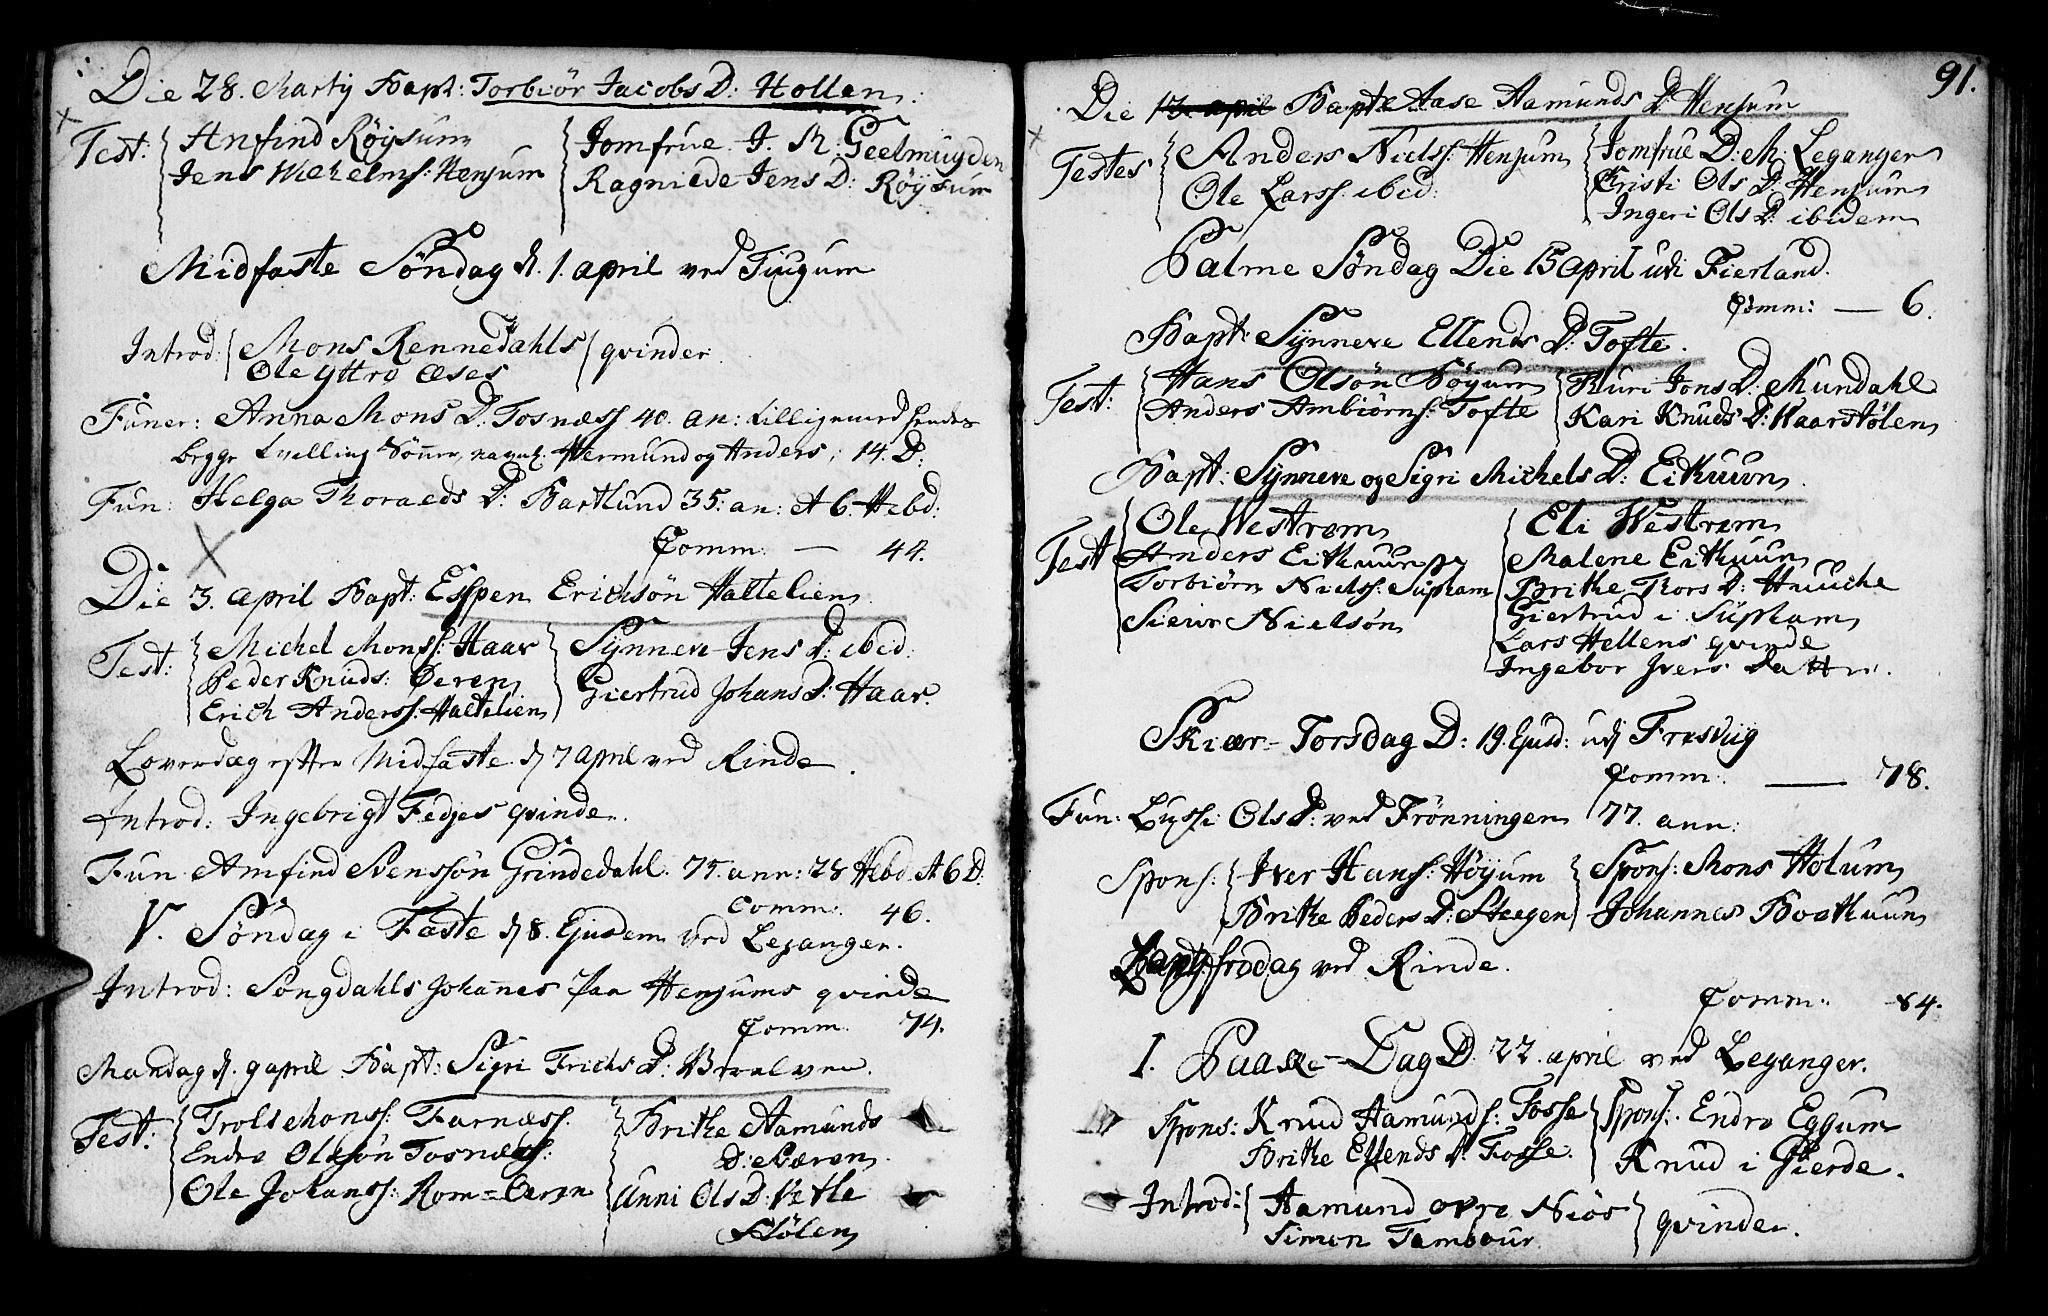 Die 28. Martij Bapt: Torbiör Jacobs D: Hollen.
Test: Anfind Röysum
Jens Wilhelms: Henjum
Jomfrue J. M. Geelmuyden
Ragniede Jens D: Röysum
Midfaste Söndag d. 1. april ved Tiugum
Introd: Mons Rennedahls
Ole yttre Æses
qvinder.
Funer: Anna Mons D: Tosnæss 40. an: tilligemed hendes
begge tvelling Sönner, navnl. Hermund og Anders, 14. D:
Fun: Helga D: Bartlund 35. an: et 6. Hebd:
Comm: — 44.
Die 3. april Bapt: Espen Erichsön Haltelien.
Test: Michel Monss: Haar
Peder Knuds: Øeren
Erich Anderss: Haltelien
Synneve Jens D: ibid:
Giertrud Johans D: Haar.
Löverdag efter Midfaste d 7 april ved Rinde.
Introd: Ingebrigt Fedjes qvinde.
Fun: Amfind Svensson Grindedahl. 75. ann: 28 Hebd. et 6 D.
Comm: 46.
V. Söndag i Faste d 8. Ejusdem ved Leganger.
Introd: Songdahls Johanes paa Henjums qvinde
Comm. 74.
Mandag d. 9 april Bapt: Sigri Erichs D:
Test: Trols Monss: Farnæss.
Endre Olssön Tosnæss:
Ole Johanss: Rom=Øeren
Brithe Aamunds
D:
Anni Ols D: Vetle
Stölen
91.
Die 12. april Bapt: Aase Aamunds D: Henjum
Testes Anders Nielss: Henjum
Ole Larss: ibid:
Jomfrue D: M: Leganger
Kristi Ols D: Henjum
Ingeri Ols D: ibidem
Palme Söndag Die 15 april udi Fierland.
Comm: — 6.
Bapt: Synneve Ellends D: Tofte.
Test: Hans Olsön Böyum
Anders Ambiörns: Tofte
Guri Jons D: Mundahl
Kari Knuds D: Haarstölen
Bapt: Synneve og Sigri Michels D: Eithuun.
Test Ole Westrem
Anders Eithuun
Torbiörn Nielss: Supham
Siewr Nielsön
Eli Westrem
Malene Eithuun
Brithe Thors D: Hauche
Giertrud i Supham
Lars Hellens qvinde
Ingebor Ivers Datter.
Skiær-Torsdag D: 19. Ejusd: udj Fresvig
Comm: — 78.
Fun: Lussi Ols D: ved Frönningen 77. ann:
Spons: Iver Hans: Höyum
Brithe Peders D: Steegen
Spons: Mons Holum
Johannes Boethuun
Langfredag ved Rinde.
Comm: 84.
I. Paaske-Dag D. 22. april ved Leganger.
Spons: Knud Aamunds: Fosse
Brithe Ellends D: Fosse.
Spons: Endre Eggum
Knud i Gierde.
Introd: Aamund øvre Niøs
Simen Tambour
qvinder.